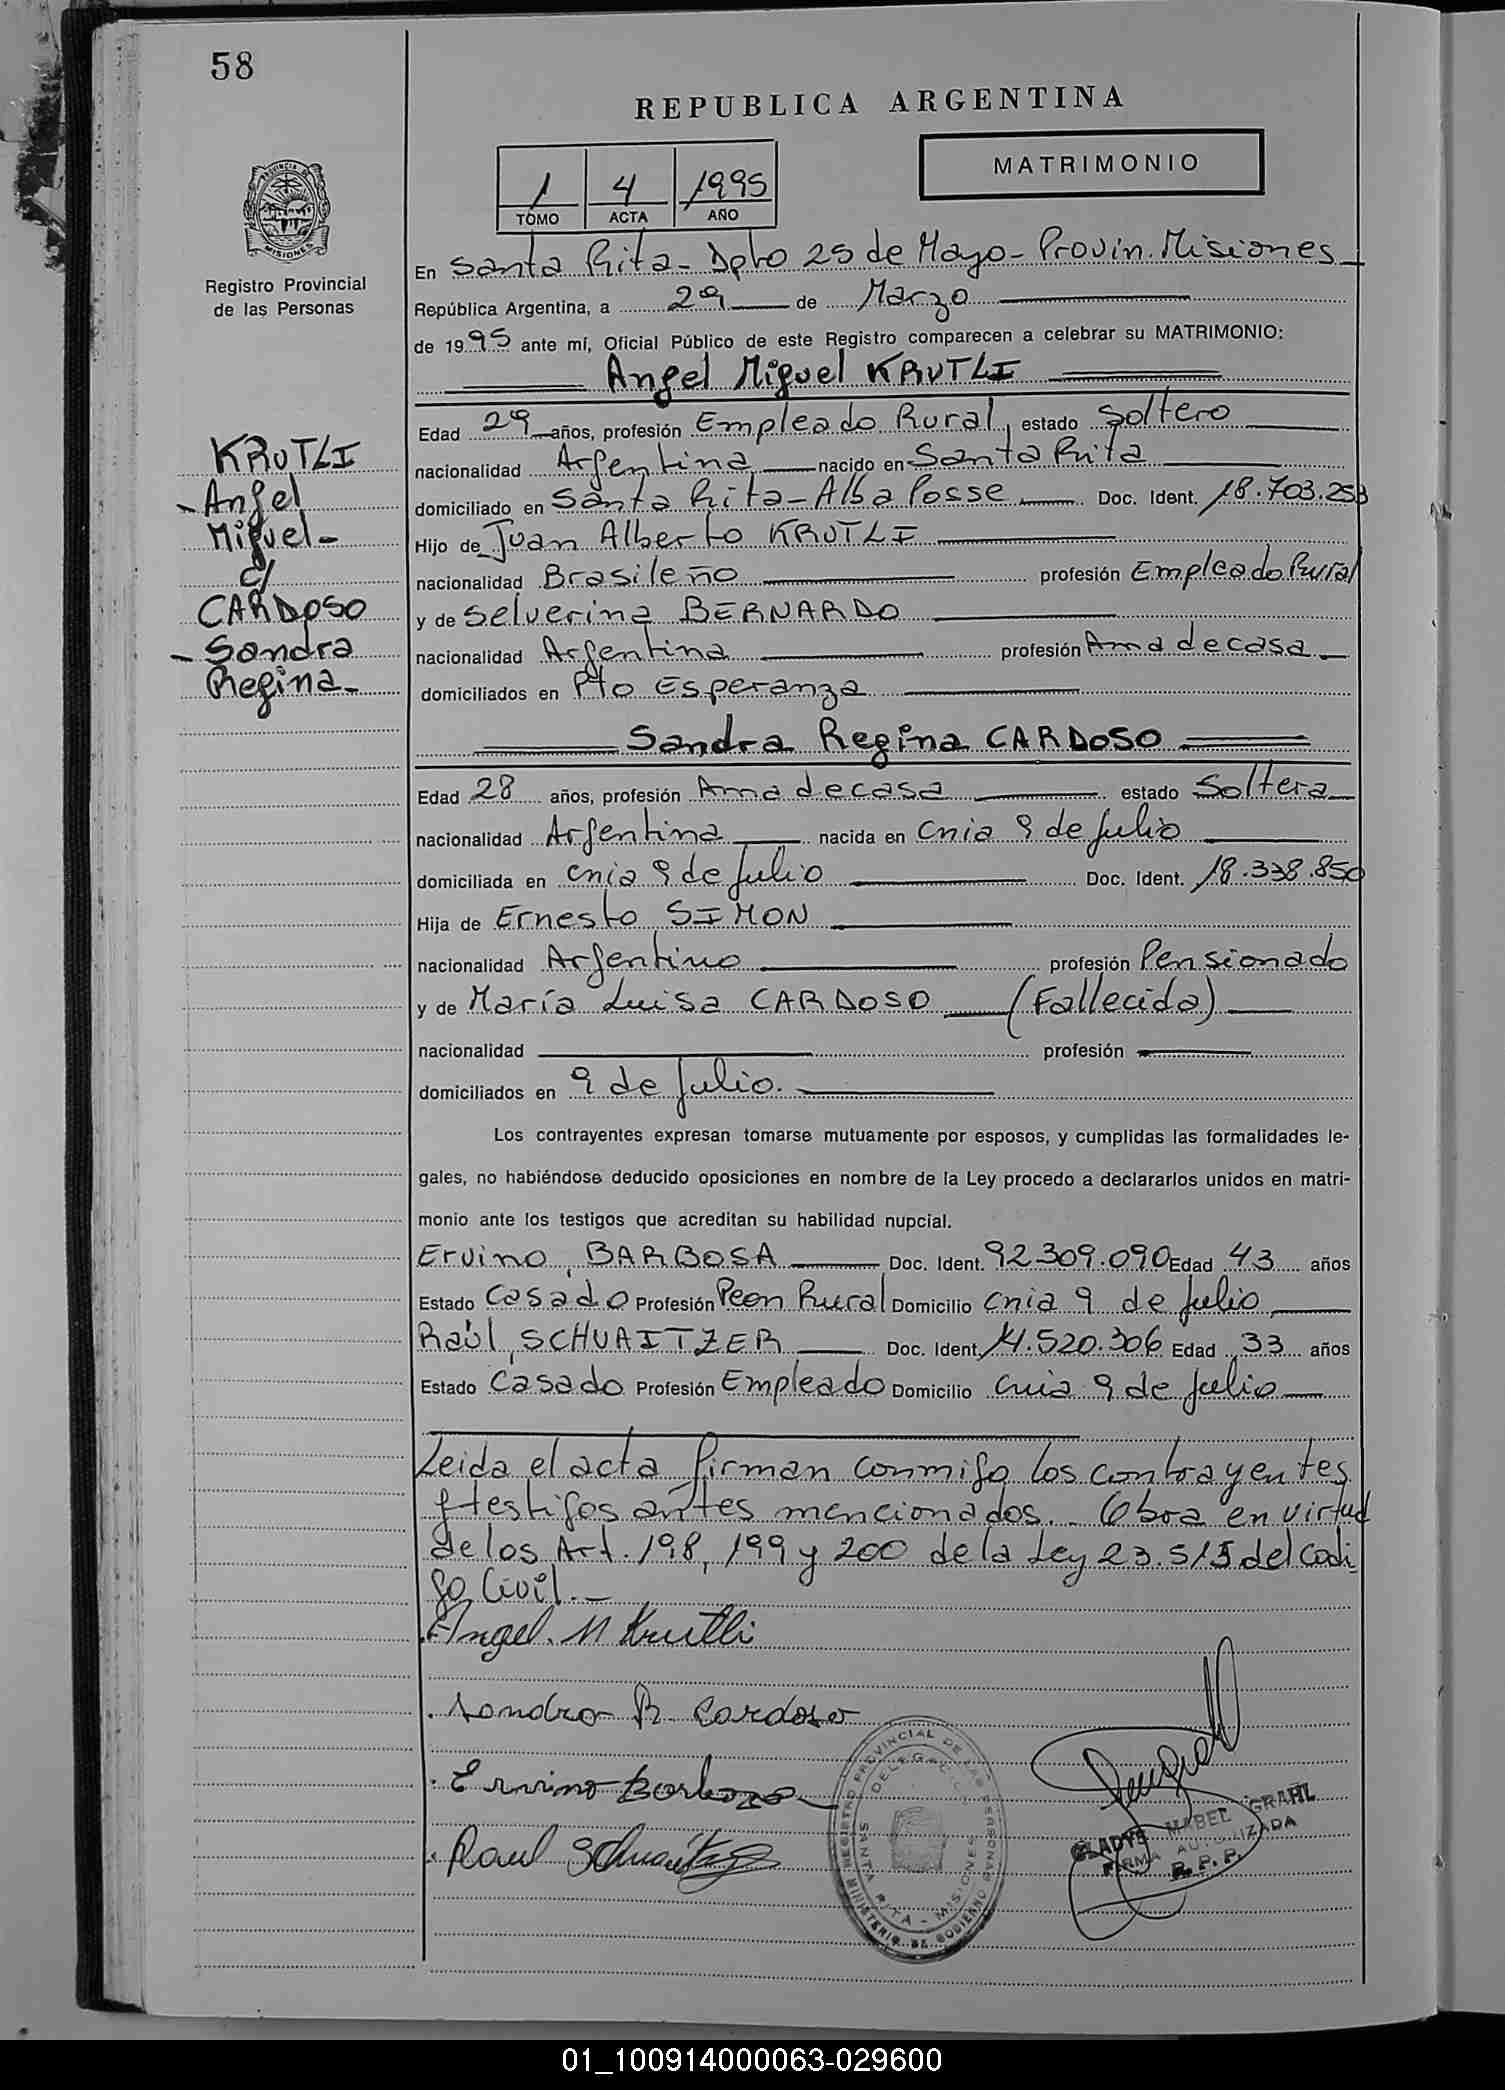 58
REPUBLICA ARGENTINA
MATRIMONIO
1 4 1995
TOMO ACTA AÑO
PROVINCIA DE MISIONES
Registro Provincial
de las Personas
En Santa Rita - Dpto 25 de Mayo - Provin. Misiones
República Argentina, a 29 de Marzo
de 1995 ante mí, Oficial Público de este Registro comparecen a celebrar su MATRIMONIO:
Angel Miguel KRUTLI
Edad 29 años, profesión Empleado Rural, estado Soltero
nacionalidad Argentina nacido en Santa Rita
domiciliado en Santa Rita - Alba Posse Doc. Ident. 18.703.253
Hijo de Juan Alberto KRUTLI
nacionalidad Brasileño profesión Empleado Rural
y de Selverina BERNARDO
nacionalidad Argentina profesión Ama de casa
domiciliados en Pto Esperanza
KRUTLI
- Angel
Miguel -
c/
CARDOSO
- Sandra
Regina -
Sandra Regina CARDOSO
Edad 28 años, profesión Ama de casa estado Soltera
nacionalidad Argentina nacida en Cnia 9 de Julio
domiciliada en Cnia 9 de Julio Doc. Ident. 18.338.850
Hija de Ernesto SIMON
nacionalidad Argentino profesión Pensionado
y de María Luisa CARDOSO (Fallecida)
nacionalidad profesión
domiciliados en 9 de Julio.
Los contrayentes expresan tomarse mutuamente por esposos, y cumplidas las formalidades le-
gales, no habiéndose deducido oposiciones en nombre de la Ley procedo a declararlos unidos en matri-
monio ante los testigos que acreditan su habilidad nupcial.
Ervino, BARBOSA Doc. Ident. 92.309.090 Edad 43 años
Estado Casado Profesión Peon Rural Domicilio Cnia 9 de Julio
Raúl, SCHUAITZER Doc. Ident. 14.520.306 Edad 33 años
Estado Casado Profesión Empleado Domicilio Cnia 9 de Julio
Leida el acta firman conmigo los contrayentes
y testigos antes mencionados. - Obra en virtud
de los Art. 198, 199 y 200 de la Ley 23.515 del Codi
go Civil. -
Angel. M Krutli
Sandra R. Cardoso
Ervino Barboza
Raul Schuaitzer
MINISTERIO DE GOBIERNO REGISTRO PROVINCIAL DE LAS PERSONAS
SANTA RITA - MISIONES
GLADYS MABEL GRAHL
FIRMA AUTORIZADA
R. P. P.
01_100914000063-029600